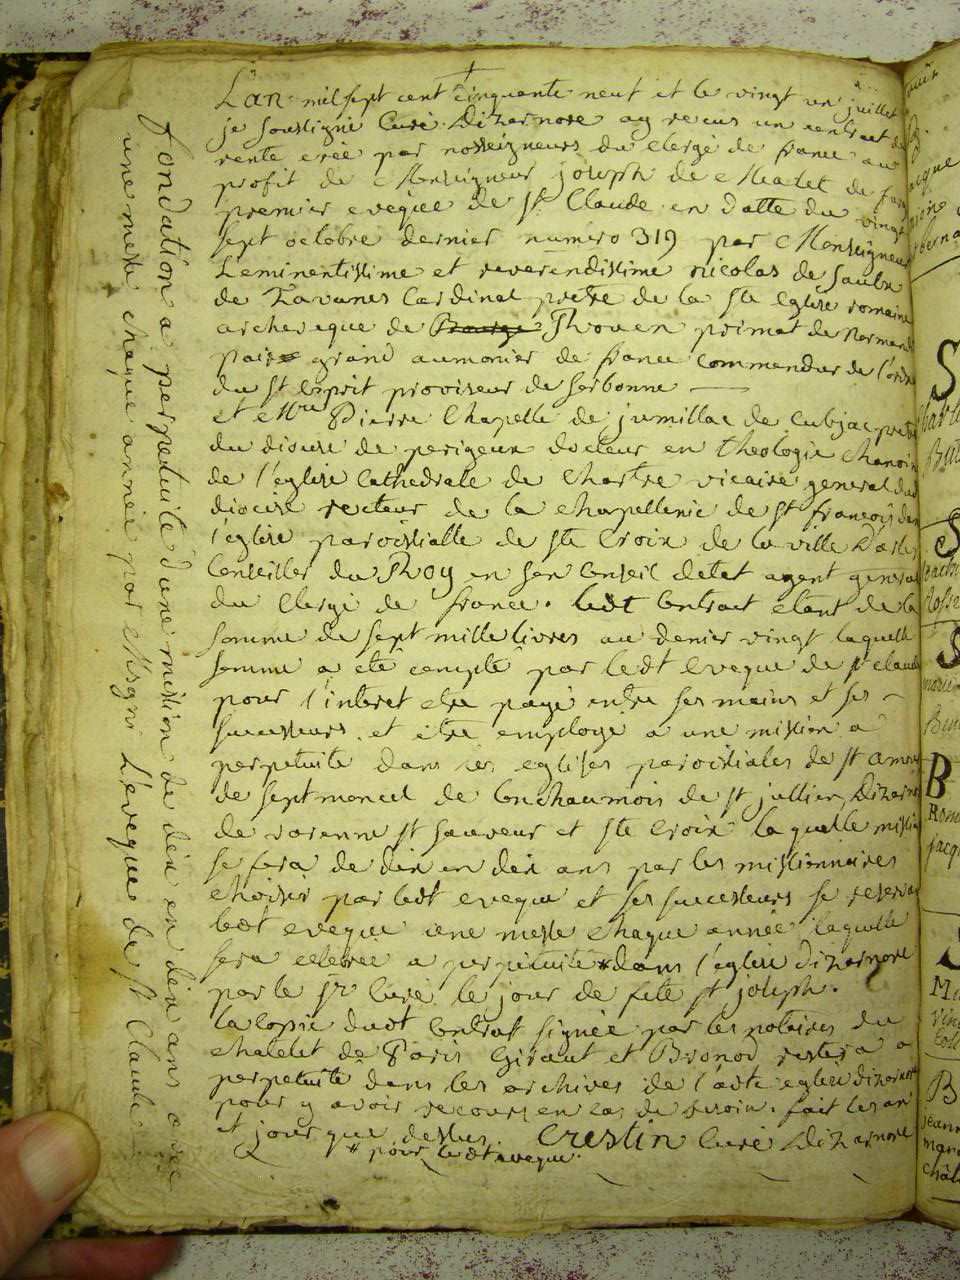 Fondation a perpetuité d'une mission de dix en dix ans avec
une messe chaque année par Msgnr L'eveque de st Claude
L'an mil sept cent cinquante neuf et le vingt un juillet
je soussigné Curé Dizernore ay recus un contract de
rente créé par nosseigneurs du Clergé de france au
profit de Monseigneur joseph de Meallet de farg
premier eveque de st Claude en datte du vingt
sept octobre dernier numero 319 par Monseigneur
L'eminentissime et reverendissime nicolas de Saulx
de Tavanes Cardinal pretre de la ste eglise romaine
archeveque de Rouen primat de Normand
pair grand aumonier de france commandur de l'ordre
du st Esprit proviseur de Sorbonne
et Mre Pierre Chapelle de jumillac de Cubjac pretre
du diocese de perigeux docteur en theologie chanoin
de l'eglise Cathedrale de Chartre vicaire general dud
diocese recteur de la chapellenie de st françois dans
l'eglise paroissialle de ste Croix de la ville D'arles
Conseiller du Roy en son Conseil detat agent general
du Clergé de france. Ledt Contract etant de la
somme de sept mille livres au denier vingt laquelle
somme a été compté par ledt eveque de st claude
pour l'interet etre payé entre ses mains et ses
successeurs et etre employé a une mission a
perpetuité dans les eglises paroissiales de st amour
de septmoncel de Lonchaumois de st jullien Dizerno
de varenne st sauveur et ste Croix laquelle missio
se fera de dix en dix ans par les missionnaires
choisis par ledt eveque et ses successeurs se reserva
ledt eveque une messe chaque année laquelle
sera celebrée a perpetuité * dans l'eglise dizernore
par le sr Curé le jour de fete st joseph.
la copie dudt Contrat signée par les notaires du
chatelet de Paris Giraut et Bronod restera a
perpetuité dans les archives de l'adte eglise dizernore
pour y avoir recours en cas de besoin. fait les an
et jour que dessus. Crestin Curé Dizernore
* pour ledt eveque.